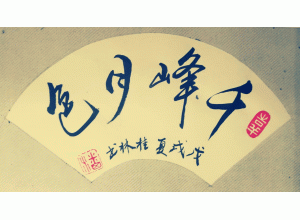 千峰月色
戊戌夏桂林书